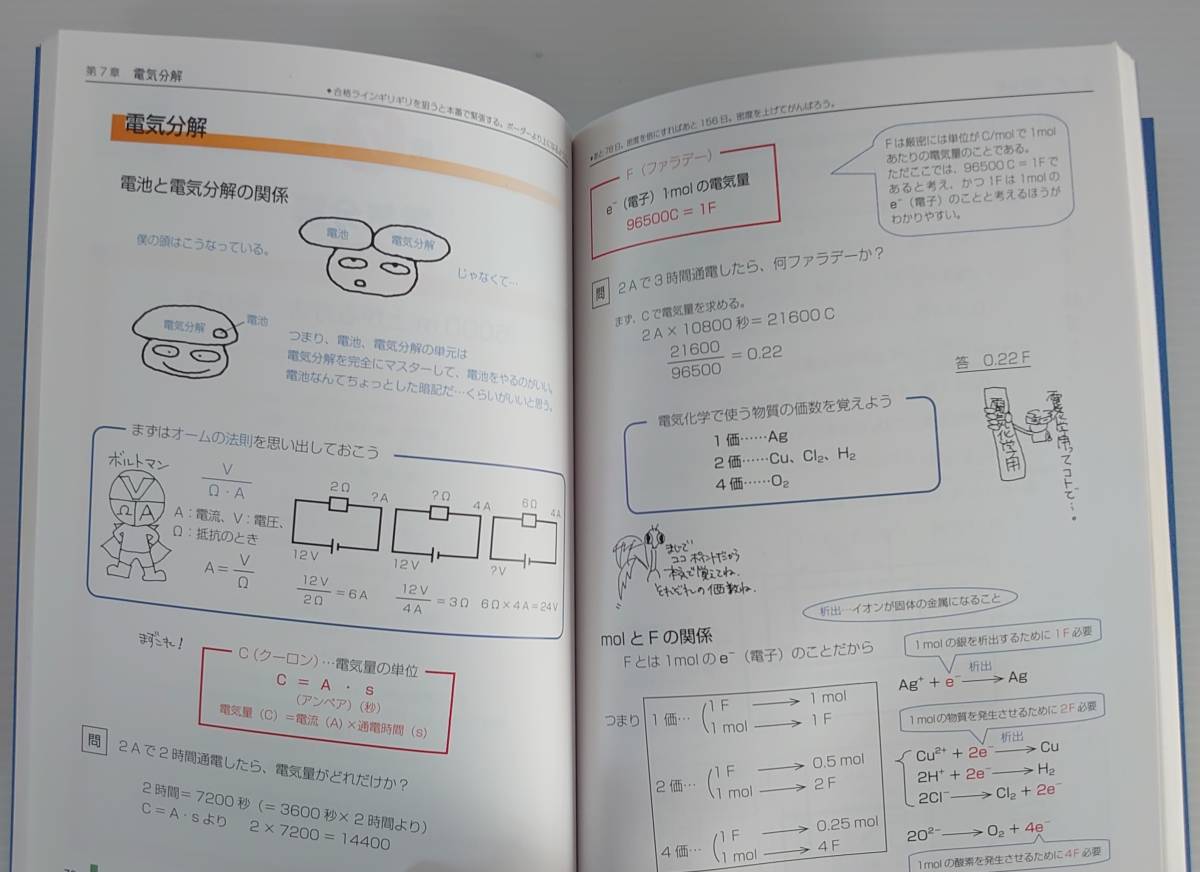 第7章 電気分解
◆合格ラインギリギリを狙うと本番で緊張する。ボーダーより上に
電気分解
電池と電気分解の関係
僕の頭はこうなっている。
電池
電気分解
じゃなくて…
電気分解
電池
つまり、電池、電気分解の単元は
電気分解を完全にマスターして、電池をやるのがいい。
電池なんてちょっとした暗記だ…くらいがいいと思う。
まずはオームの法則を思い出しておこう
ボルトマン
V
Ω A
V
Ω・A
A:電流、V:電圧、
Ω:抵抗のとき
A=V/Ω
2Ω ?A
12V
12V/2Ω=6A
?Ω 4A
12V
12V/4A=3Ω
6Ω 4A
?V
6Ω×4A=24V
まずこれ!
C(クーロン)…電気量の単位
C = A ・ s
(アンペア)(秒)
電気量(C)=電流(A)×通電時間(s)
問 2Aで2時間通電したら、電気量がどれだけか?
2時間=7200秒(=3600秒×2時間より)
C=A・sより 2×7200=14400
◆あと78日。密度を倍にすればあと156日。密度を上げてがんばろう。
F(ファラデー)
e⁻(電子)1molの電気量
96500C=1F
Fは厳密には単位がC/molで1mol
あたりの電気量のことである。
ただここでは、96500C=1Fで
あると考え、かつ1Fは1molの
e⁻(電子)のことと考えるほうが
わかりやすい。
問 2Aで3時間通電したら、何ファラデーか?
まず、Cで電気量を求める。
2A×10800秒=21600C
21600/96500=0.22
答 0.22F
電気化学で使う物質の価数を覚えよう
1価……Ag
2価……Cu、Cl₂、H₂
4価……O₂
電気化学用
電気化学用ってコトで…。
まじで
ココ ポイントだから
本気で覚えてね
それぞれの価数ね.
析出…イオンが固体の金属になること
molとFの関係
Fとは1molのe⁻(電子)のことだから
つまり
1価… 1F → 1mol
1mol → 1F
2価… 1F → 0.5mol
1mol → 2F
4価… 1F → 0.25mol
1mol → 4F
1molの銀を析出するために1F必要
析出
Ag⁺+e⁻→Ag
1molの物質を発生させるために2F必要
析出
Cu²⁺+2e⁻→Cu
2H⁺+2e⁻→H₂
2Cl⁻→Cl₂+2e⁻
2O²⁻→O₂+4e⁻
1molの酸素を発生させるために4F必要